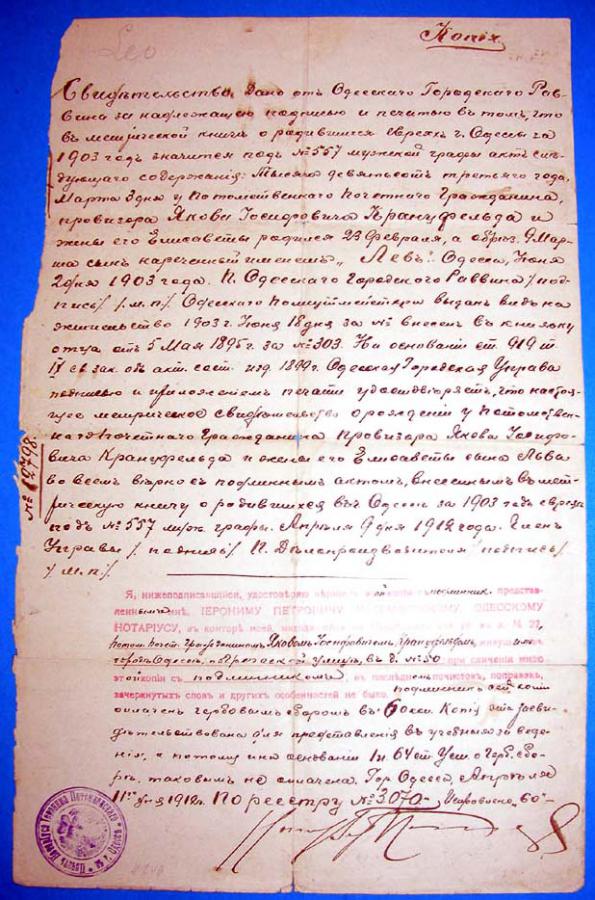 Leo
Копія
Свидѣтельство. Данъ отъ Одесскаго Городского Рав-
вина за надлежащею подписью и печатью въ томъ, что
въ метрической книгѣ о родившихся евреяхъ г. Одессы за
1903 годъ значится подъ № 557 мужской графы актъ слѣ-
дующаго содержанія: Тысяча девятьсотъ третьяго года,
Марта 3 дня у потомственнаго почетнаго Гражданина,
провизора Якова Іосифовича Кранцфельда и
жены его Елисаветы родился 23 Февраля, а обрѣз. 9 Мар-
та сынъ нареченный именемъ „Левъ". Одесса, Іюня
2 дня 1903 года. П. Одесскаго Городского Раввина /под-
пись/ /м.п./ Одесскаго Полицмейстера выданъ видъ на
жительство 1903 г. Іюня 18 дня за № внесен въ книжку
отца отъ 5 Мая 1895 г. за № 303. На основаніи ст. 919 т.
IX св. зак. объ акт. сост. изд. 1899 г. Одесская Городская Управа
подписью и приложеніемъ печати удостовѣряетъ, что настоя-
щее метрическое свидѣтельство о рожденіи у потомствен-
наго почетнаго Гражданина Провизора Якова Іосифо-
вича Кранцфельда и жены его Елисаветы сына Льва
во всемъ вѣрно съ подлиннымъ актомъ, внесеннымъ въ метри-
ческую книгу о родившихся въ г. Одессѣ за 1903 годъ евреяхъ
подъ № 557 муж. графы. Апрѣля 9 дня 1912 года. Членъ
Управы /подпись/ П. Дѣлопроизводителя /подпись/
/м.п./
№ 12798.
Я, нижеподписавшійся, удостовѣряю вѣрность этой копіи съ подлинник. представ-
леннымъ мнѣ, ІЕРОНИМУ ПЕТРОВИЧУ ОДЕССКОМУ
НОТАРІУСУ, въ конторѣ моей, д. № 27,
потом. почет. Гражданиномъ Яковомъ Іосифовичемъ Кранцфельдомъ, живущимъ въ
городѣ Одессѣ, по улицѣ, въ д. № 50 при сличеніи мною
этой копіи съ подлинникомъ, въ послѣднемъ почистокъ, поправокъ,
зачеркнутыхъ словъ и другихъ особенностей не было. подлинникъ сей копіи
оплаченъ гербовымъ сборомъ въ Копія эта засви-
дѣтельствована для представленія въ учебныя заведе-
нія, а потому на основаніи п. 64 ст. Уст. о Герб. сбо-
рѣ, таковымъ не оплачена. Гор. Одесса, Апрѣля
11 дня 1912 г. По реестру № 3070